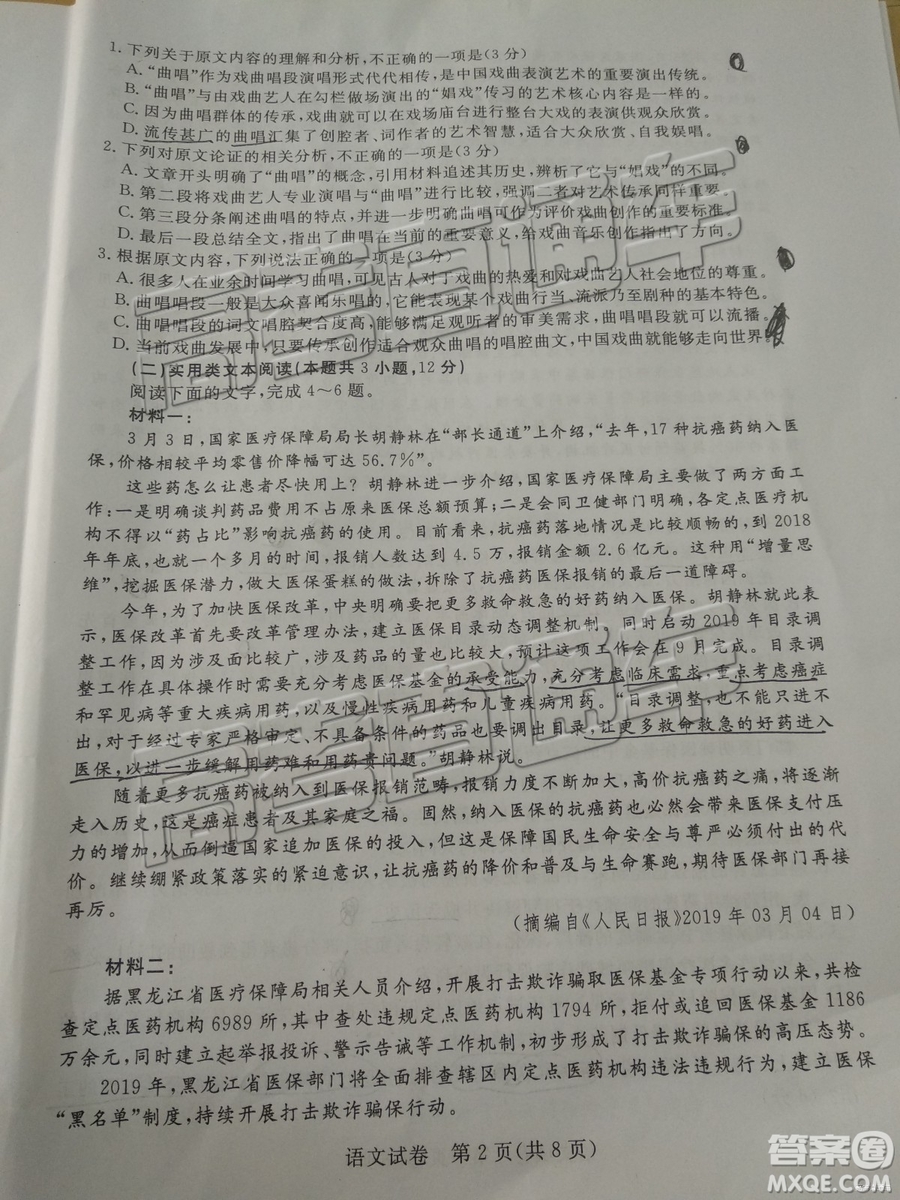 1. 下列关于原文内容的理解和分析,不正确的一项是(3 分)
A. “曲唱”作为戏曲唱段演唱形式代代相传,是中国戏曲表演艺术的重要演出传统。
B. “曲唱”与由戏曲艺人在勾栏做场演出的“娼戏”传习的艺术核心内容是一样的。
C. 因为曲唱群体的传承,戏曲就可以在戏场庙台进行整台大戏的表演供观众欣赏。
D. 流传甚广的曲唱汇集了创腔者、词作者的艺术智慧,适合大众欣赏、自我娱唱。
2. 下列对原文论证的相关分析,不正确的一项是(3 分)
A. 文章开头明确了“曲唱”的概念,引用材料追述其历史,辨析了它与“娼戏”的不同。
B. 第二段将戏曲艺人专业演唱与“曲唱”进行比较,强调二者对艺术传承同样重要。
C. 第三段分条阐述曲唱的特点,并进一步明确曲唱可作为评价戏曲创作的重要标准。
D. 最后一段总结全文,指出了曲唱在当前的重要意义,给戏曲音乐创作指出了方向。
3. 根据原文内容,下列说法正确的一项是(3 分)
A. 很多人在业余时间学习曲唱,可见古人对于戏曲的热爱和对戏曲艺人社会地位的尊重。
B. 曲唱唱段一般是大众喜闻乐唱的,它能表现某个戏曲行当、流派乃至剧种的基本特色。
C. 曲唱唱段的词文唱腔契合度高,能够满足观听者的审美需求,戏曲就可以流播。
D. 当前戏曲发展中,只要传承创作适合观众曲唱的唱腔曲文,中国戏曲就能够走向世界
(二)实用类文本阅读(本题共 3 小题,12 分)
阅读下面的文字,完成 4～6 题。
材料一:
3 月 3 日,国家医疗保障局局长胡静林在“部长通道”上介绍,“去年,17 种抗癌药纳入医
保,价格相较平均零售价降幅可达 56.7%”。
这些药怎么让患者尽快用上? 胡静林进一步介绍,国家医疗保障局主要做了两方面工
作:一是明确谈判药品费用不占原来医保总额预算;二是会同卫健部门明确,各定点医疗机
构不得以“药占比”影响抗癌药的使用。目前看来,抗癌药落地情况是比较顺畅的,到 2018
年年底,也就一个多月的时间,报销人数达到 4.5 万,报销金额 2.6 亿元。这种用“增量思
维”,挖掘医保潜力,做大医保蛋糕的做法,拆除了抗癌药医保报销的最后一道障碍。
今年,为了加快医保改革,中央明确要把更多救命救急的好药纳入医保。胡静林就此表
示,医保改革首先要改革管理办法,建立医保目录动态调整机制。同时启动 2019 年目录调
整工作,因为涉及面比较广,涉及药品的量也比较大,预计这项工作会在 9 月完成。目录调
整工作在具体操作时需要充分考虑医保基金的承受能力,充分考虑临床需求,重点考虑癌症
和罕见病等重大疾病用药,以及慢性疾病用药和儿童疾病用药。“目录调整,也不能只进不
出,对于经过专家严格审定、不具备条件的药品也要调出目录,让更多救命救急的好药进入
医保,以进一步缓解用药难和用药贵问题。”胡静林说。
随着更多抗癌药被纳入到医保报销范畴,报销力度不断加大,高价抗癌药之痛,将逐渐
走入历史,这是癌症患者及其家庭之福。固然,纳入医保的抗癌药必然会带来医保支付压
力的增加,从而倒逼国家追加医保的投入,但这是保障国民生命安全与尊严必须付出的代
价。继续绷紧政策落实的紧迫意识,让抗癌药的降价和普及与生命赛跑,期待医保部门再接
再厉。
(摘编自《人民日报》2019 年 03 月 04 日)
材料二:
据黑龙江省医疗保障局相关人员介绍,开展打击欺诈骗取医保基金专项行动以来,共检
查定点医药机构 6989 所,其中查处违规定点医药机构 1794 所,拒付或追回医保基金 1186
万余元,同时建立起举报投诉、警示告诫等工作机制,初步形成了打击欺诈骗保的高压态势。
2019 年,黑龙江省医保部门将全面排查辖区内定点医药机构违法违规行为,建立医保
“黑名单”制度,持续开展打击欺诈骗保行动。
语文试卷 第 2 页(共 8 页)
高考直通车
高考直通车
答案圈
MXQE.COM